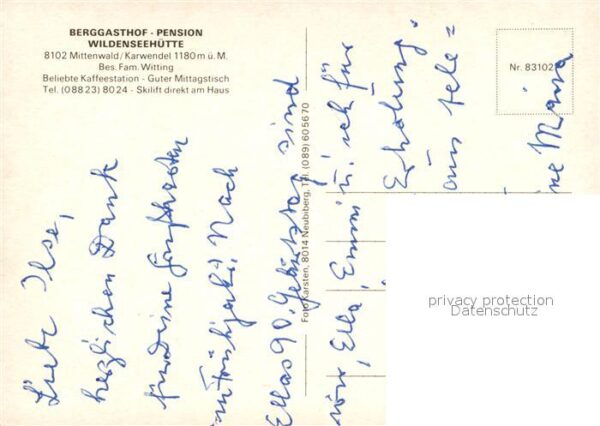 BERGGASTHOF - PENSION
WILDENSEEHÜTTE
8102 Mittenwald/Karwendel 1180 m ü. M.
Bes. Fam. Witting
Beliebte Kaffeestation - Guter Mittagstisch
Tel. (0 88 23) 80 24 - Skilift direkt am Haus
Nr. 83102
Foto Karsten, 8014 Neubiberg, Tel. (089) 605670
Liebe Ilse,
herzlichen Dank
für Deine
Nach
Ellas 90. Geburtstag sind
wir, Ella, Emmi u. ich für
Erholung.
aus
ne Maria
privacy protection
Datenschutz